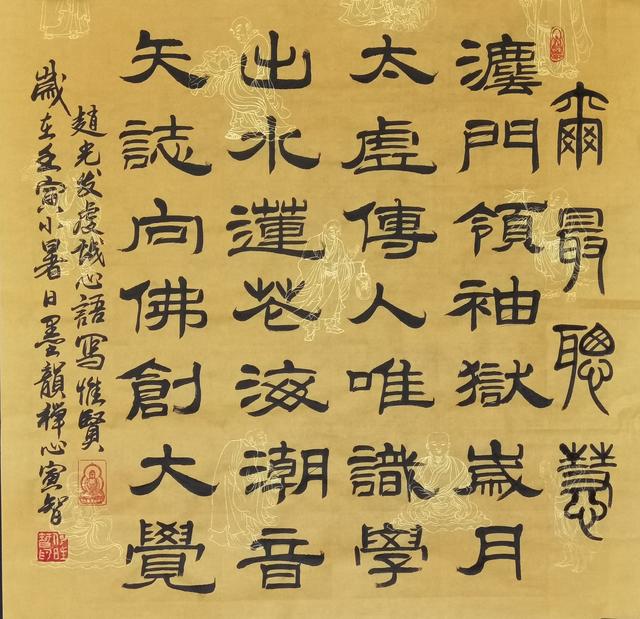 爾最聰慧
門領袖獄歲月
太虛傳人唯識學
出水蓮花海潮音
矢誌向佛創大覺
趙光发虔誠心語寫惟賢
歲在壬寅小暑日墨韻禪心寅智